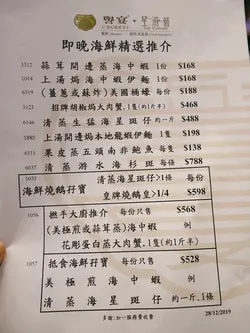 囍宴 · 星海薈
U BANQUET
即晚海鮮精選推介
1312 蒜茸開邊蒸海中蝦 1份 $168
1014 上湯焗海中蝦伊麵 1份 $168
(薑蔥或蘇炸)美國桶蠔 每份 $188
3123 招牌胡椒焗大肉蟹.1隻(約1斤半) $468
清蒸生猛海星斑仔 1條 $488
1885 上湯開邊焗本地龍蝦伊麵 1隻 $198
6311 果皮蒸五頭南非鮑魚 每隻 $138
6037 清蒸游水海杉斑 每條 $788
1033 清蒸海星斑仔>1條
海鮮燒鵝孖寶
皇牌燒鵝皇>1/4 $598
1056 撚手大廚推介 每份只售 $568
(美極煎或蒜茸蒸)海中蝦
花彫蛋白蒸大肉蟹.1隻(約1斤半)
1057 抵食海鮮孖寶 每份只售 $528
美極煎海中蝦
清蒸海星斑仔 約一斤.1條
28/12/2019
多謝:加一服務費收費